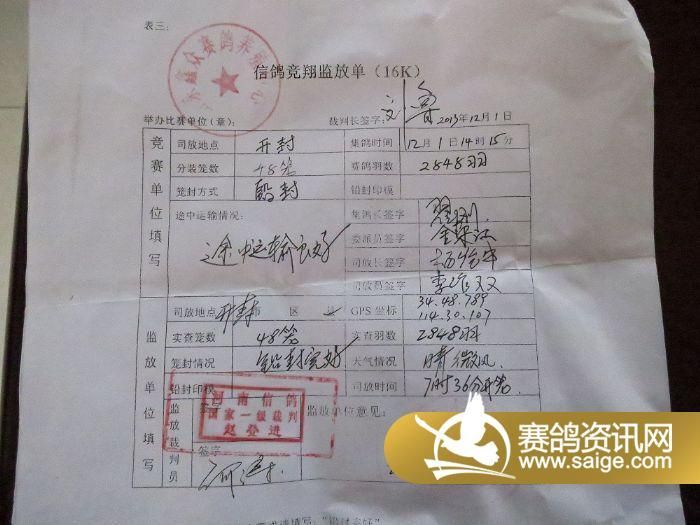 表三:
信鸽竞翔监放单（16K）
举办比赛单位（章）: 裁判长签字: 刘鲁 2013年12月1日
竞赛单位填写
司放地点 开封 集鸽时间 12月1日14时15分
分装笼数 48笼 赛鸽羽数 2848羽
笼封方式 铅封 铅封印模
途中运输情况: 途中运输良好
集鸽长签字
委派员签字
司放长签字
司放员签字
监放单位填写
司放地点 开封 市 区 县 GPS坐标 34.48.789 114.30.107
实查笼数 48笼 实查羽数 2848羽
笼封情况 铅封完好 天气情况 晴微风
铅封印模 司放时间 7时36分开笼
监放裁判员
签字
监放单位意见:
河南信鸽
国家一级裁判
赵登进
赛鸽资讯网
www.saige.com